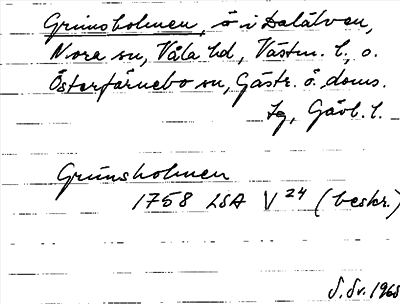 Grimsholmen, ö i Dalälven,
Nora sn, Våla hd, Västm. l., o.
Österfärnebo sn, Gästr. ö. doms.
tg, Gävl. l.
Grimsholmen
1758 LSA V 24 (beskr.)
S. Sv. 1968